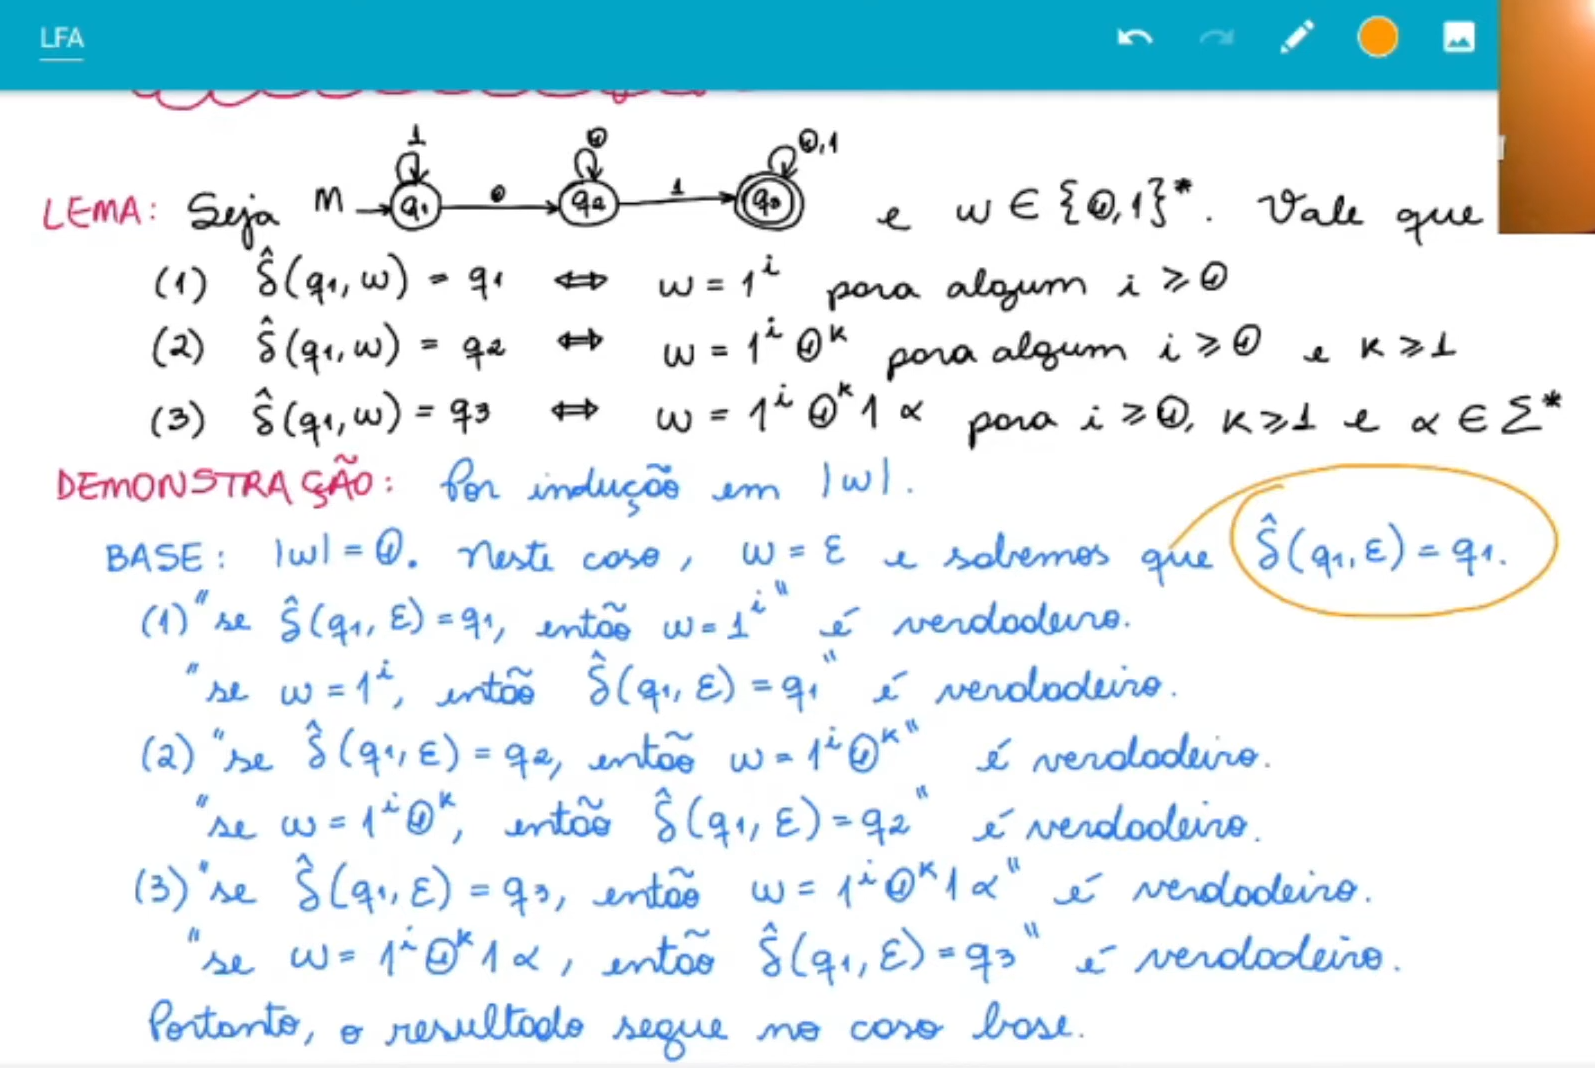 LFA
1 0 0,1
LEMA: Seja M q1 0 q2 1 q3 e w ∈ {0,1}*. Vale que
(1) δ̂(q1, w) = q1 ⇔ w = 1^i para algum i ≥ 0
(2) δ̂(q1, w) = q2 ⇔ w = 1^i 0^k para algum i ≥ 0 e k ≥ 1
(3) δ̂(q1, w) = q3 ⇔ w = 1^i 0^k 1 α para i ≥ 0, k ≥ 1 e α ∈ Σ*
DEMONSTRAÇÃO: Por indução em |w|.
BASE: |w| = 0. Neste caso, w = ε e sabemos que δ̂(q1, ε) = q1.
(1) "se δ̂(q1, ε) = q1, então w = 1^i" é verdadeiro.
"se w = 1^i, então δ̂(q1, ε) = q1" é verdadeiro.
(2) "se δ̂(q1, ε) = q2, então w = 1^i 0^k" é verdadeiro.
"se w = 1^i 0^k, então δ̂(q1, ε) = q2" é verdadeiro.
(3) "se δ̂(q1, ε) = q3, então w = 1^i 0^k 1 α" é verdadeiro.
"se w = 1^i 0^k 1 α, então δ̂(q1, ε) = q3" é verdadeiro.
Portanto, o resultado segue no caso base.